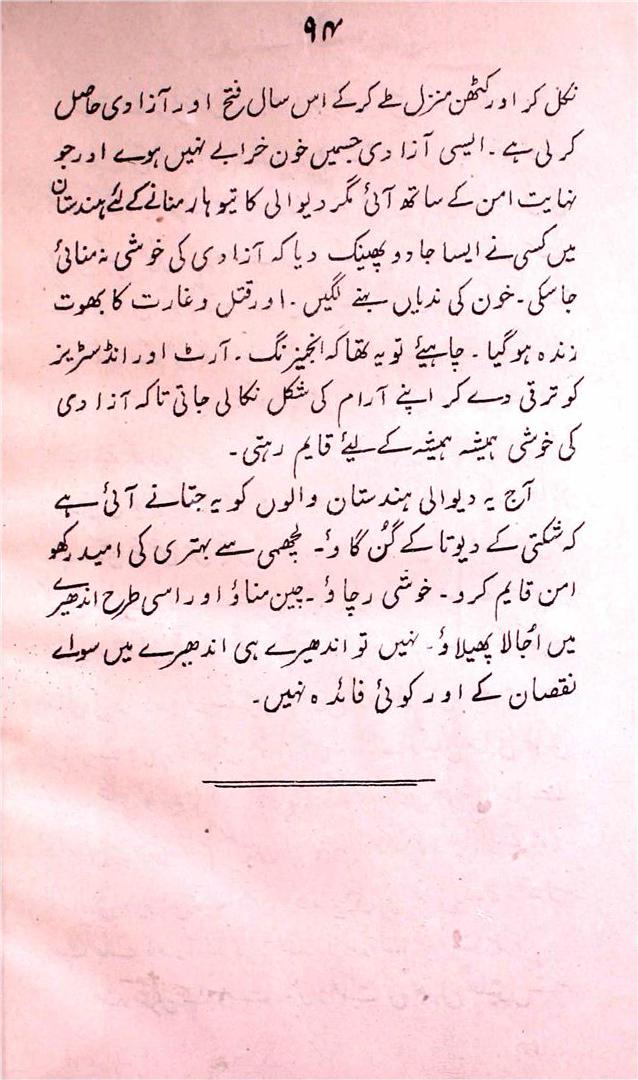 ۹۴
نکل کر اور کٹھن منزل طے کرکے اس سال فتح اور آزادی حاصل
کرلی ہے ۔ ایسی آزادی جسمیں خون خرابے نہیں ہوے اور جو
نہایت امن کے ساتھ آئی مگر دیوالی کا تیوہار منانے کے لئے ہندستان
میں کسی نے ایسا جادو پھینک دیا کہ آزادی کی خوشی نہ منائی
جاسکی ۔ خون کی ندیاں بہنے لگیں ۔ اور قتل و غارت کا بھوت
زندہ ہوگیا ۔ چاہیئے تو یہ تھا کہ انجیزنگ ۔ آرٹ اور انڈسٹریز
کو ترقی دے کر اپنے آرام کی شکل نکالی جاتی تاکہ آزادی
کی خوشی ہمیشہ ہمیشہ کے لیئے قایم رہتی ۔
آج یہ دیوالی ہندستان والوں کو یہ جتانے آئی ہے
کہ شکتی کے دیوتا کے گُن گاؤ ۔ لچھمی سے بہتری کی امید رکھو
امن قایم کرو ۔ خوشی رچاؤ ۔ چین مناؤ اور اسی طرح اندھیرے
میں اُجالا پھیلاؤ ۔ نہیں تو اندھیرے ہی اندھیرے میں سواے
نقصان کے اور کوئی فائدہ نہیں ۔